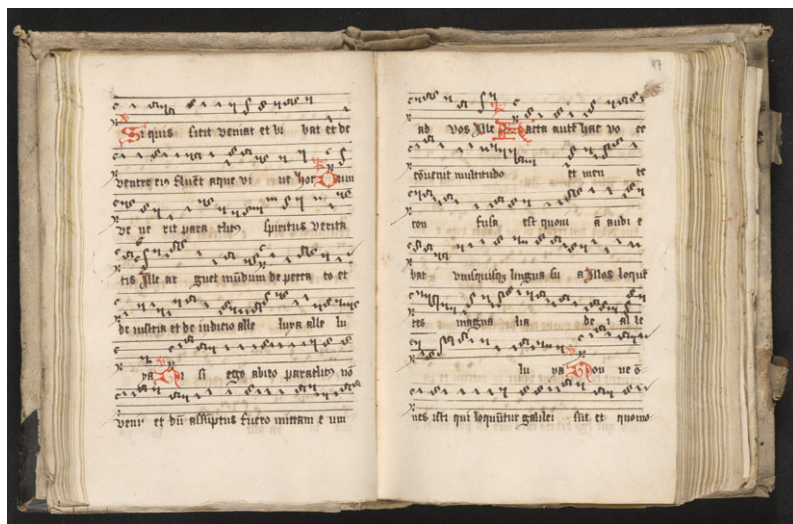 Si quis sitit veniat et bi bat et de
ventre eius fluent aque vi ve hor Cum
ve ne rit para clitus spiritus verita
tis Ille ar guet mundum de pecca to et
de iusticia et de iudicio alle luya alle lu
ya Ni si ego abiero paraclitus nō
veni et dū assūptus fuero mittam e um
47
ad vos Ille Facta autē hac vo ce
cōvenit multitudo et men te
con fusa est quoni ā audi e
bat vnusquisq lingua su a Illos loquē
tes magna lia de i al le
lu ya Non ne ō
nes isti qui loquūtur galilei sūt et quomo